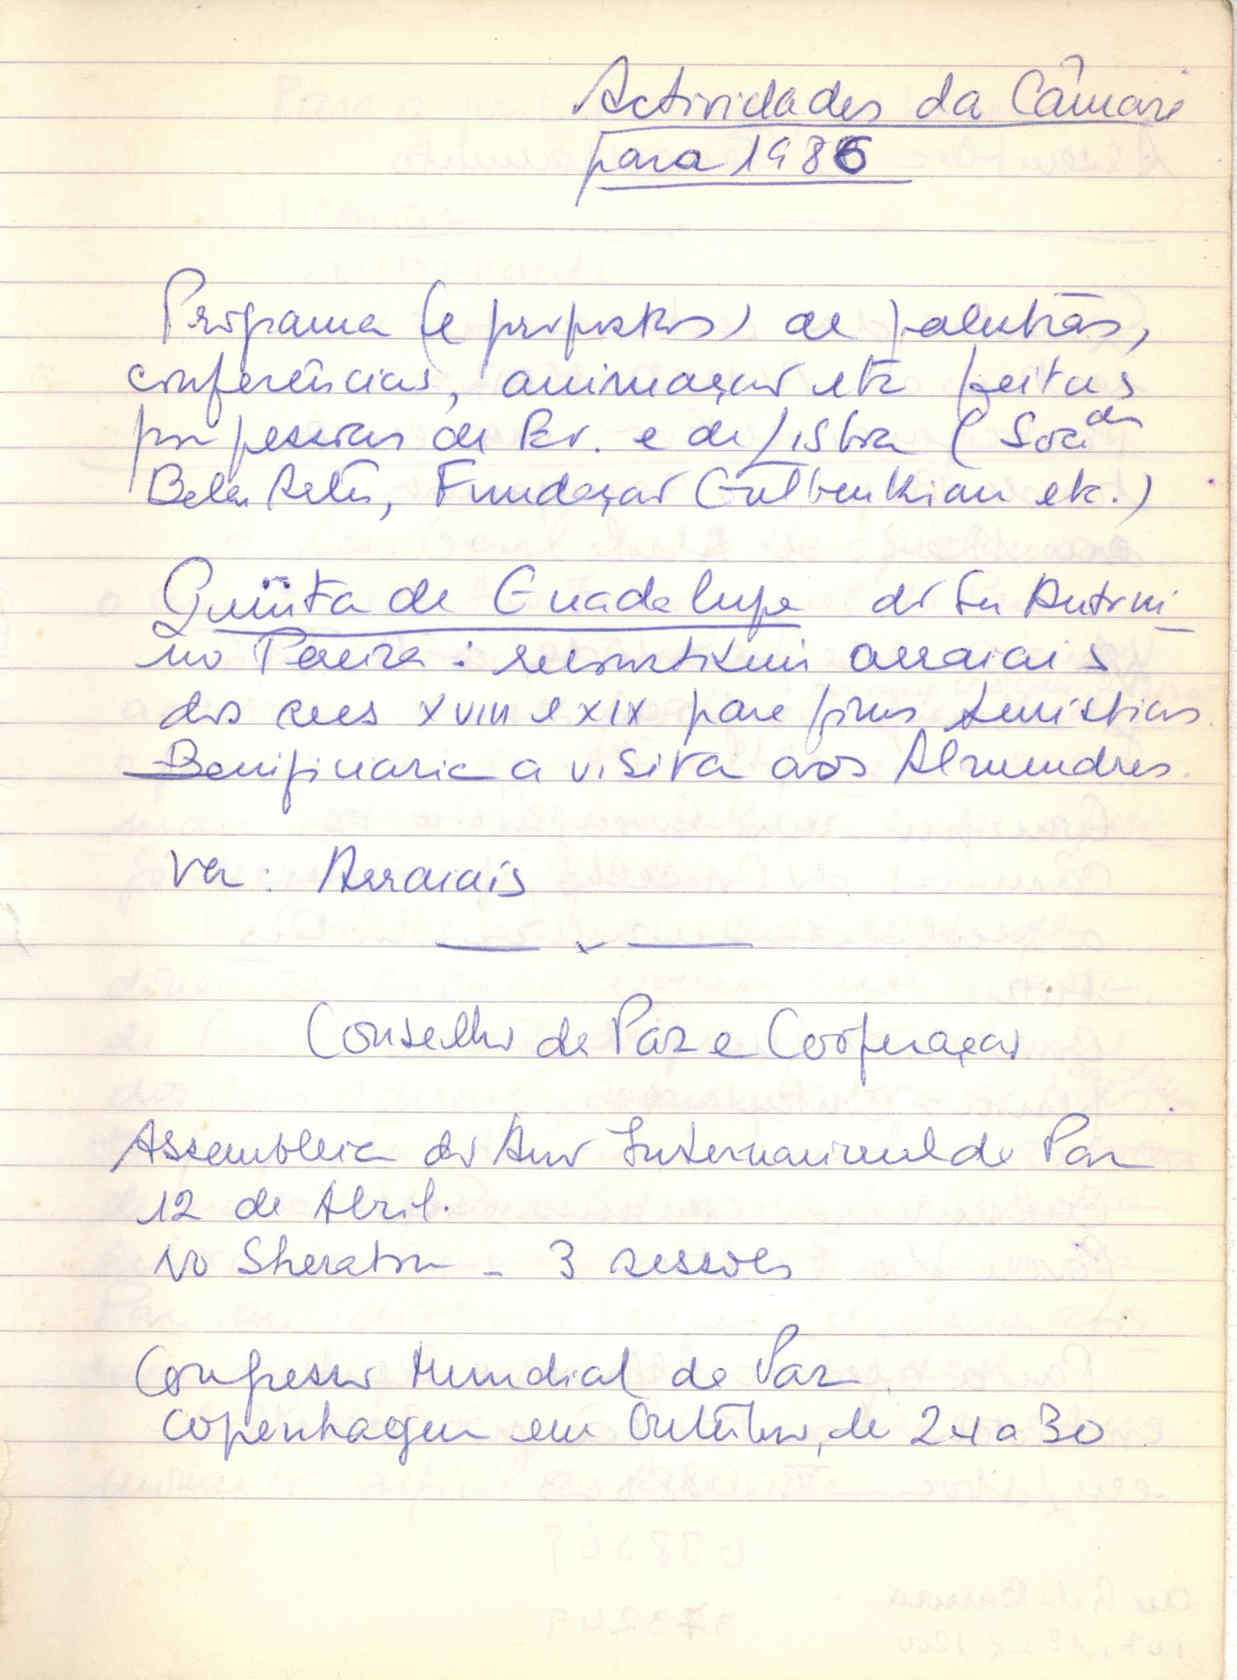 Actividades da Câmara
para 1986
Programa (e propostas) de palestras,
conferências, animação etc feitas
por pessoas de Ev. e de Lisboa (Soc. de
Belas Artes, Fundação Gulbenkian etc.)
Quinta de Guadalupe do Sr Antoni_
no Pereira: arraiais
dos secs XVIII e XIX para fins turísticos.
Benificiaria a visita aos Almendres.
Ver: Arraiais
Conselho da Paz e Cooperação
Assembleia do Ano Internacional da Paz
12 de Abril.
No Sheraton - 3 sessões
Congresso Mundial da Paz.
Copenhagen em Outubro, de 24 a 30